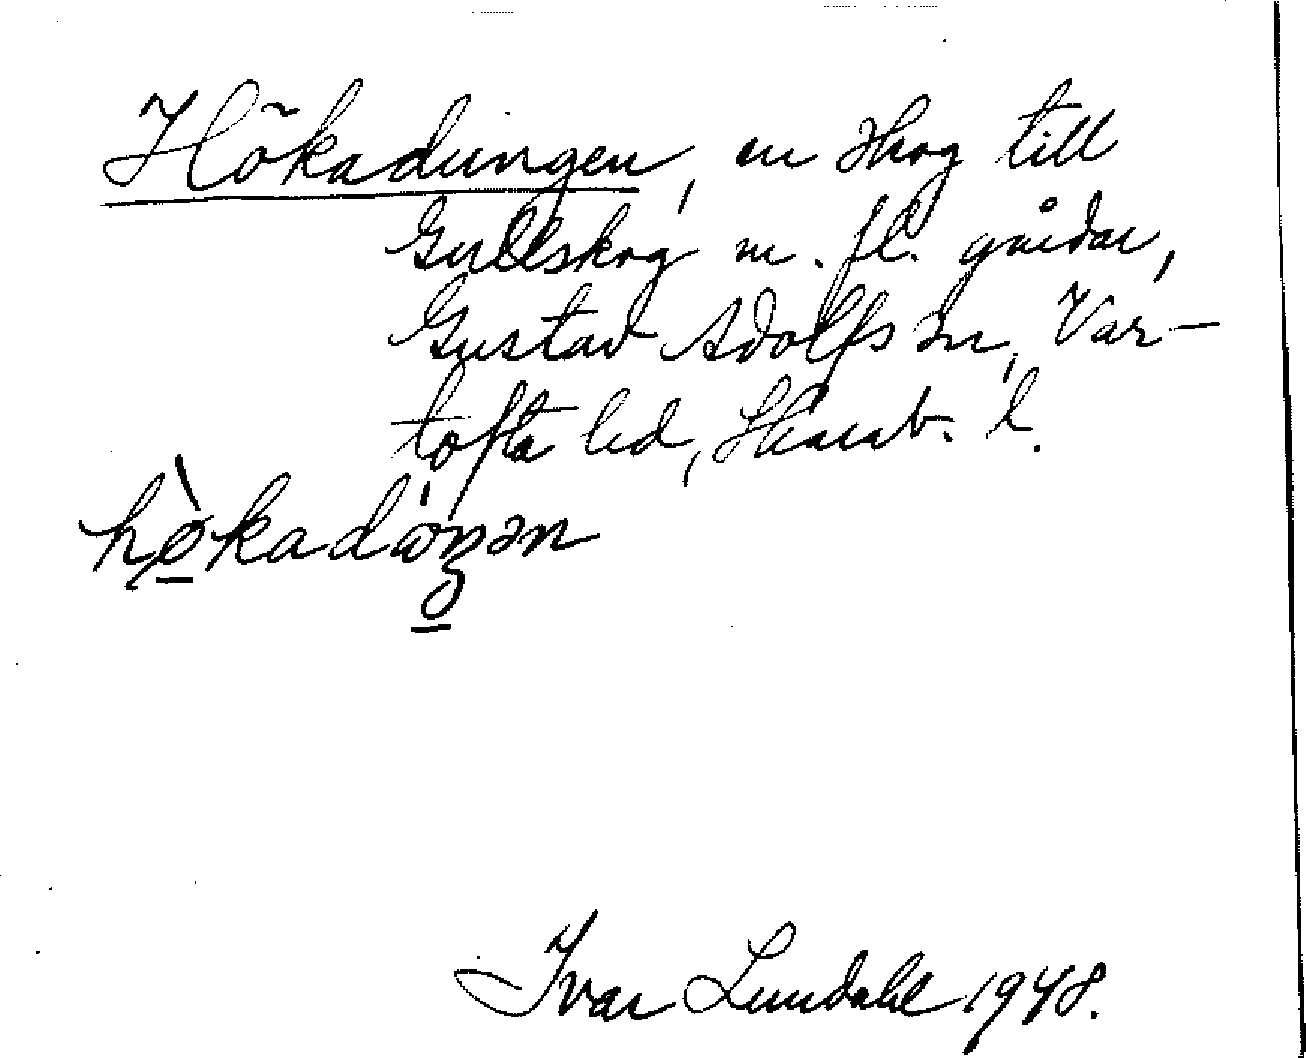 Hökadungen, en skog till
Gullskog m. fl. gårdar,
Gustav Adolfs sn, Var-
tofta hd, Skarab. l.
hò̱kadáŋən
Ivar Lundahl 1948.